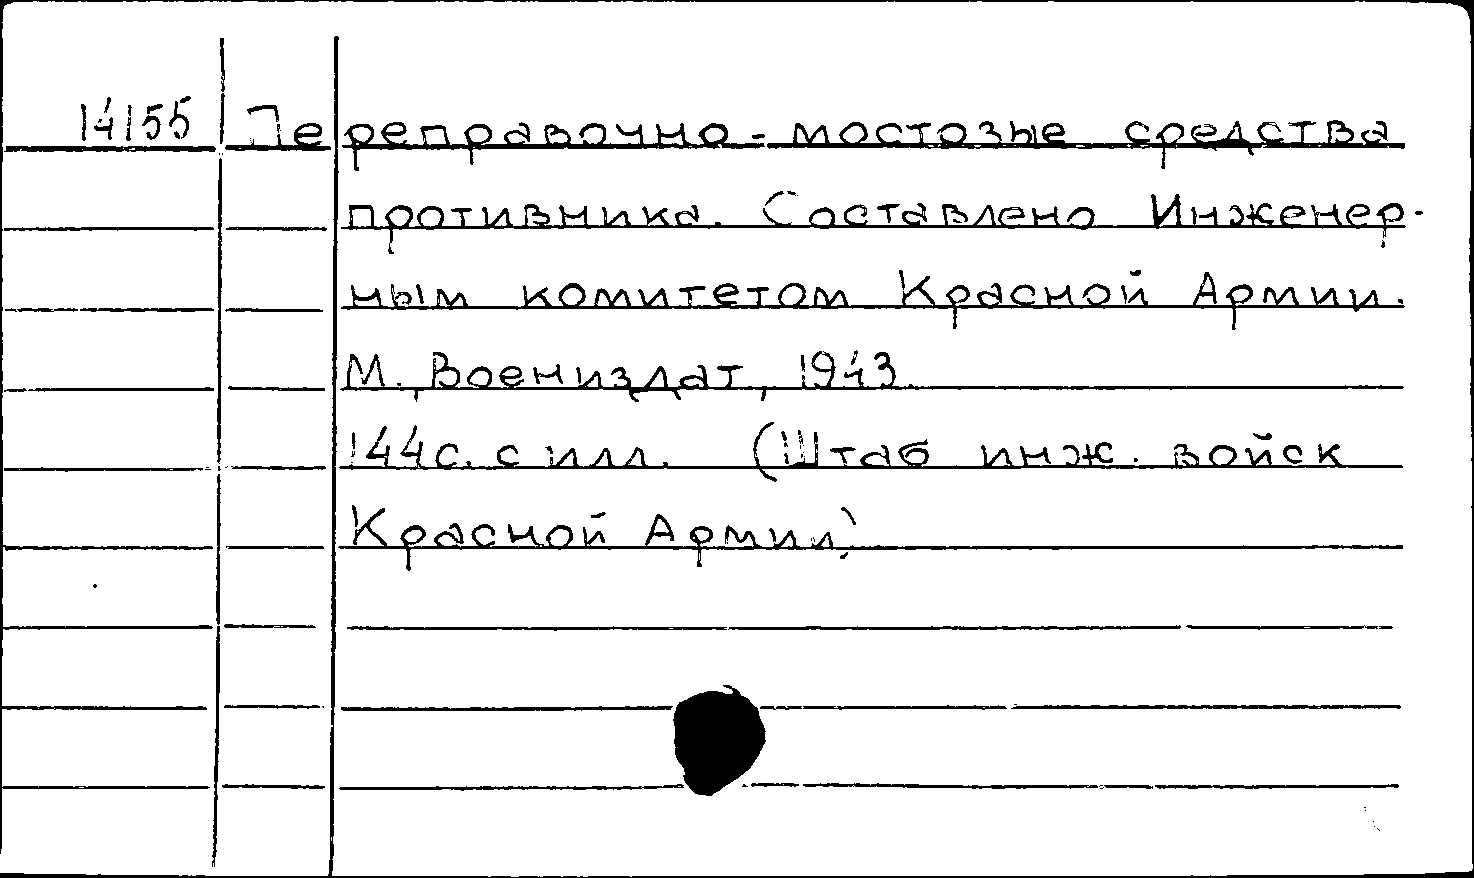 14155 Переправочно-мостовые средства
противника. Составлено Инженер-
ным комитетом Красной Армии.
М., Воениздат, 1943.
144с. с илл. (Штаб инж. войск
Красной Армии)